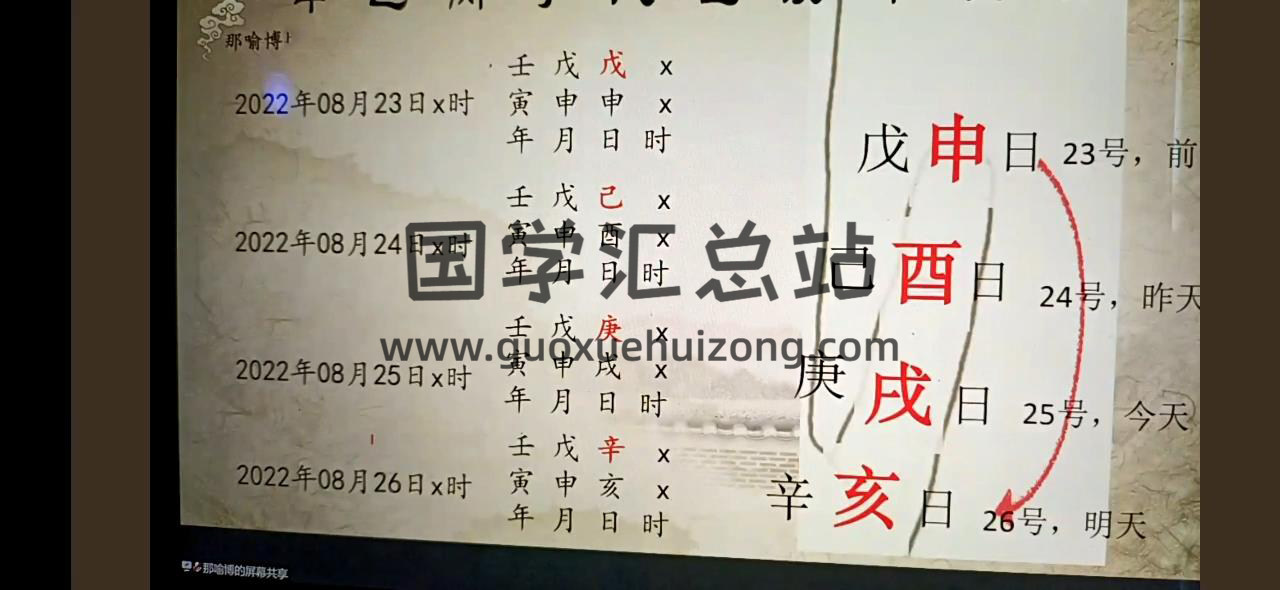 那喻博
壬 戊 戊 x
2022年08月23日x时 寅 申 申 x
年 月 日 时
戊申日 23号，前
壬 戊 己 x
2022年08月24日x时 寅 申 酉 x
年 月 日 时
己酉日 24号，昨天
国学汇总站
www.guoxuehuizong.com
壬 戊 庚 x
2022年08月25日x时 寅 申 戌 x
年 月 日 时
庚戌日 25号，今天
壬 戊 辛 x
2022年08月26日x时 寅 申 亥 x
年 月 日 时
辛亥日 26号，明天
那喻博的屏幕共享